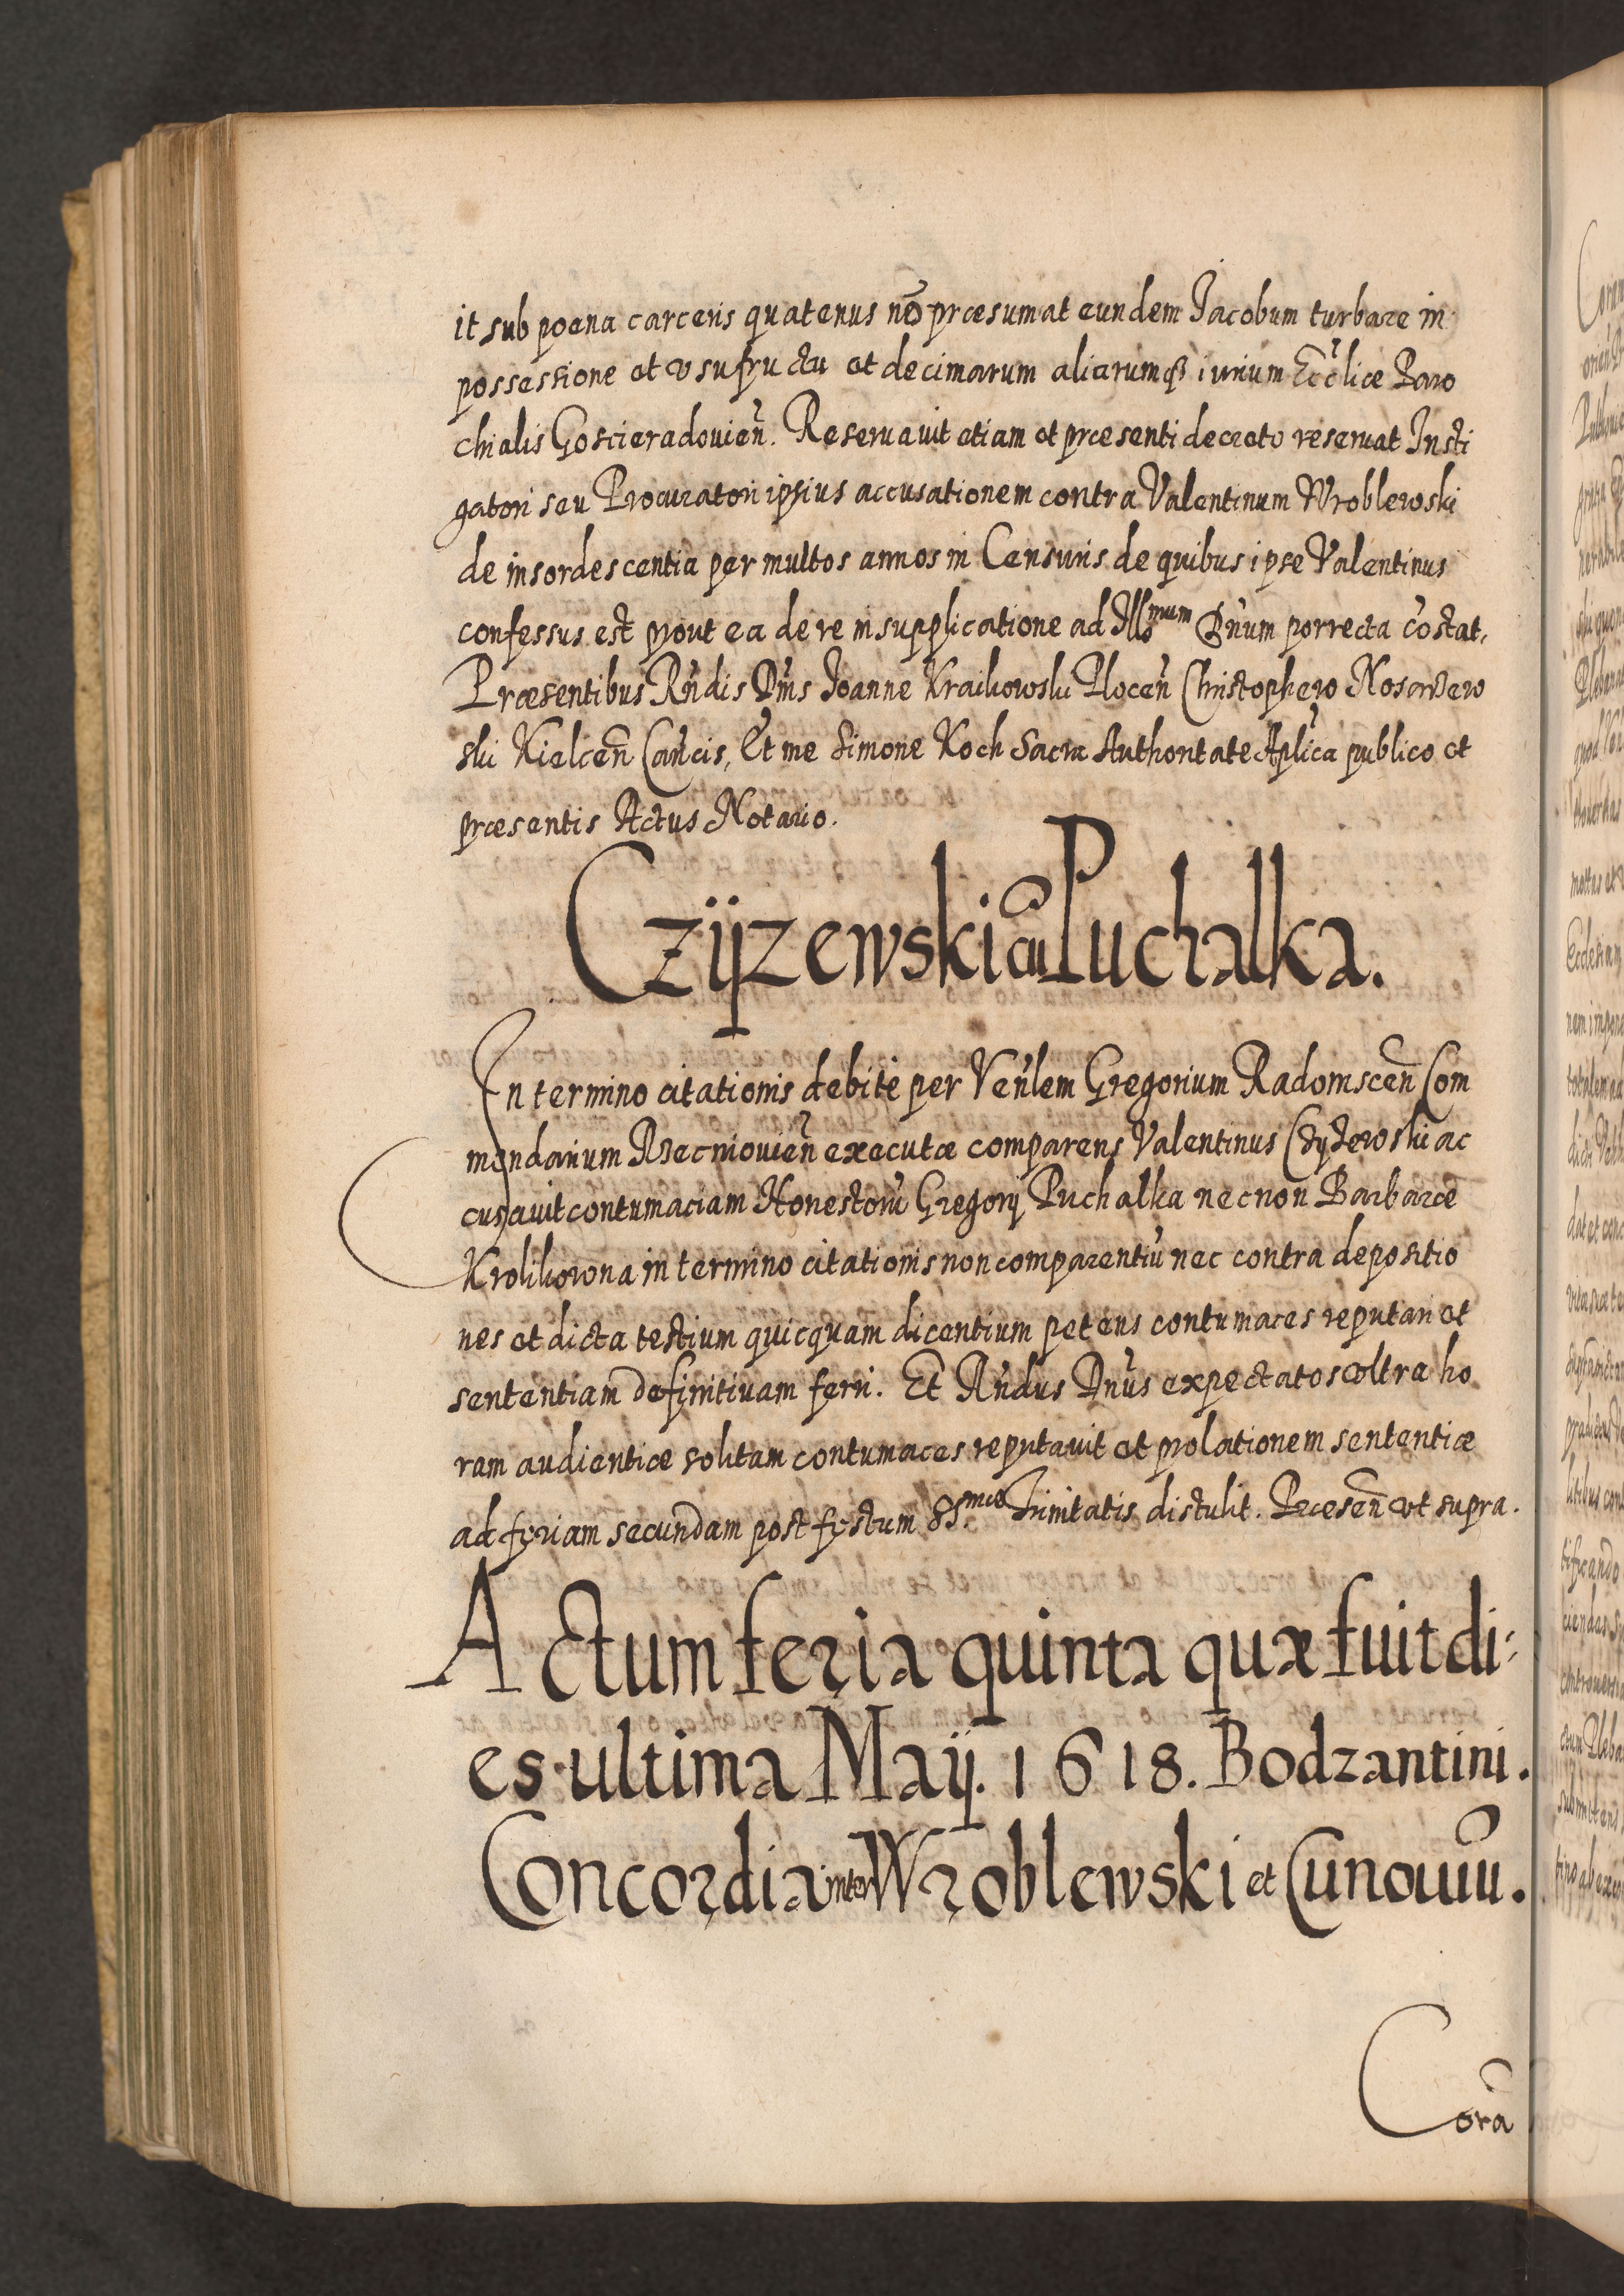 it sub poena carceris quatenus nō præsumat eundem Jacobum turbare in
possessione et vsufructu et decimarum aliarumq₃ iurium Ecc̃liæ Paro
chialis Goscieradouień. Reseruauit etiam et præsenti decreto reseruat Insti
gatori seu Procuratori ipsius accusationem contra Valentinum Wroblewski
de insordescentia per multos annos in Censuris de quibus ipse Valentinus
confessus est prout ea de re in supplicatione ad Illmum Dn̄um porrecta cōstat,
Præsentibus Rn̄dis Dn̄is Joanne Kraikowski Plocen̄ Christophero Nosarzew
ski Kielcen̄ Can̄cis, Et me Simone Koch Sacra Authoritate Apl̃ica publico et
præsentis Actus Notario.
Czÿzewski cū Puchalka.
In termino citationis debite per Ven̄lem Gregorium Radomscen̄ Com
mendarium Rzecniouien̄ executæ comparens Valentinus Czyżewski ac
cusauit contumaciam Honestorū Gregorij Puchalka necnon Barbaræ
Krolikowna in termino citationis non comparentiū nec contra depositio
nes et dicta testium quicquam dicentium petens contumaces reputari et
sententiam definitiuam ferri. Et Rn̄dus Dn̄us expectatos vltra ho
ram audientiæ solitam contumaces reputauit et prolationem sententiæ
ad feriam secundam post festum SS.mæ Trinitatis distulit. Præsen̄ vt supra.
Actum feria quinta quæ fuit di:
es ultima Maij. 1618. Bodzantini.
Concordia inter Wroblewski et Cunouiū.
Corā